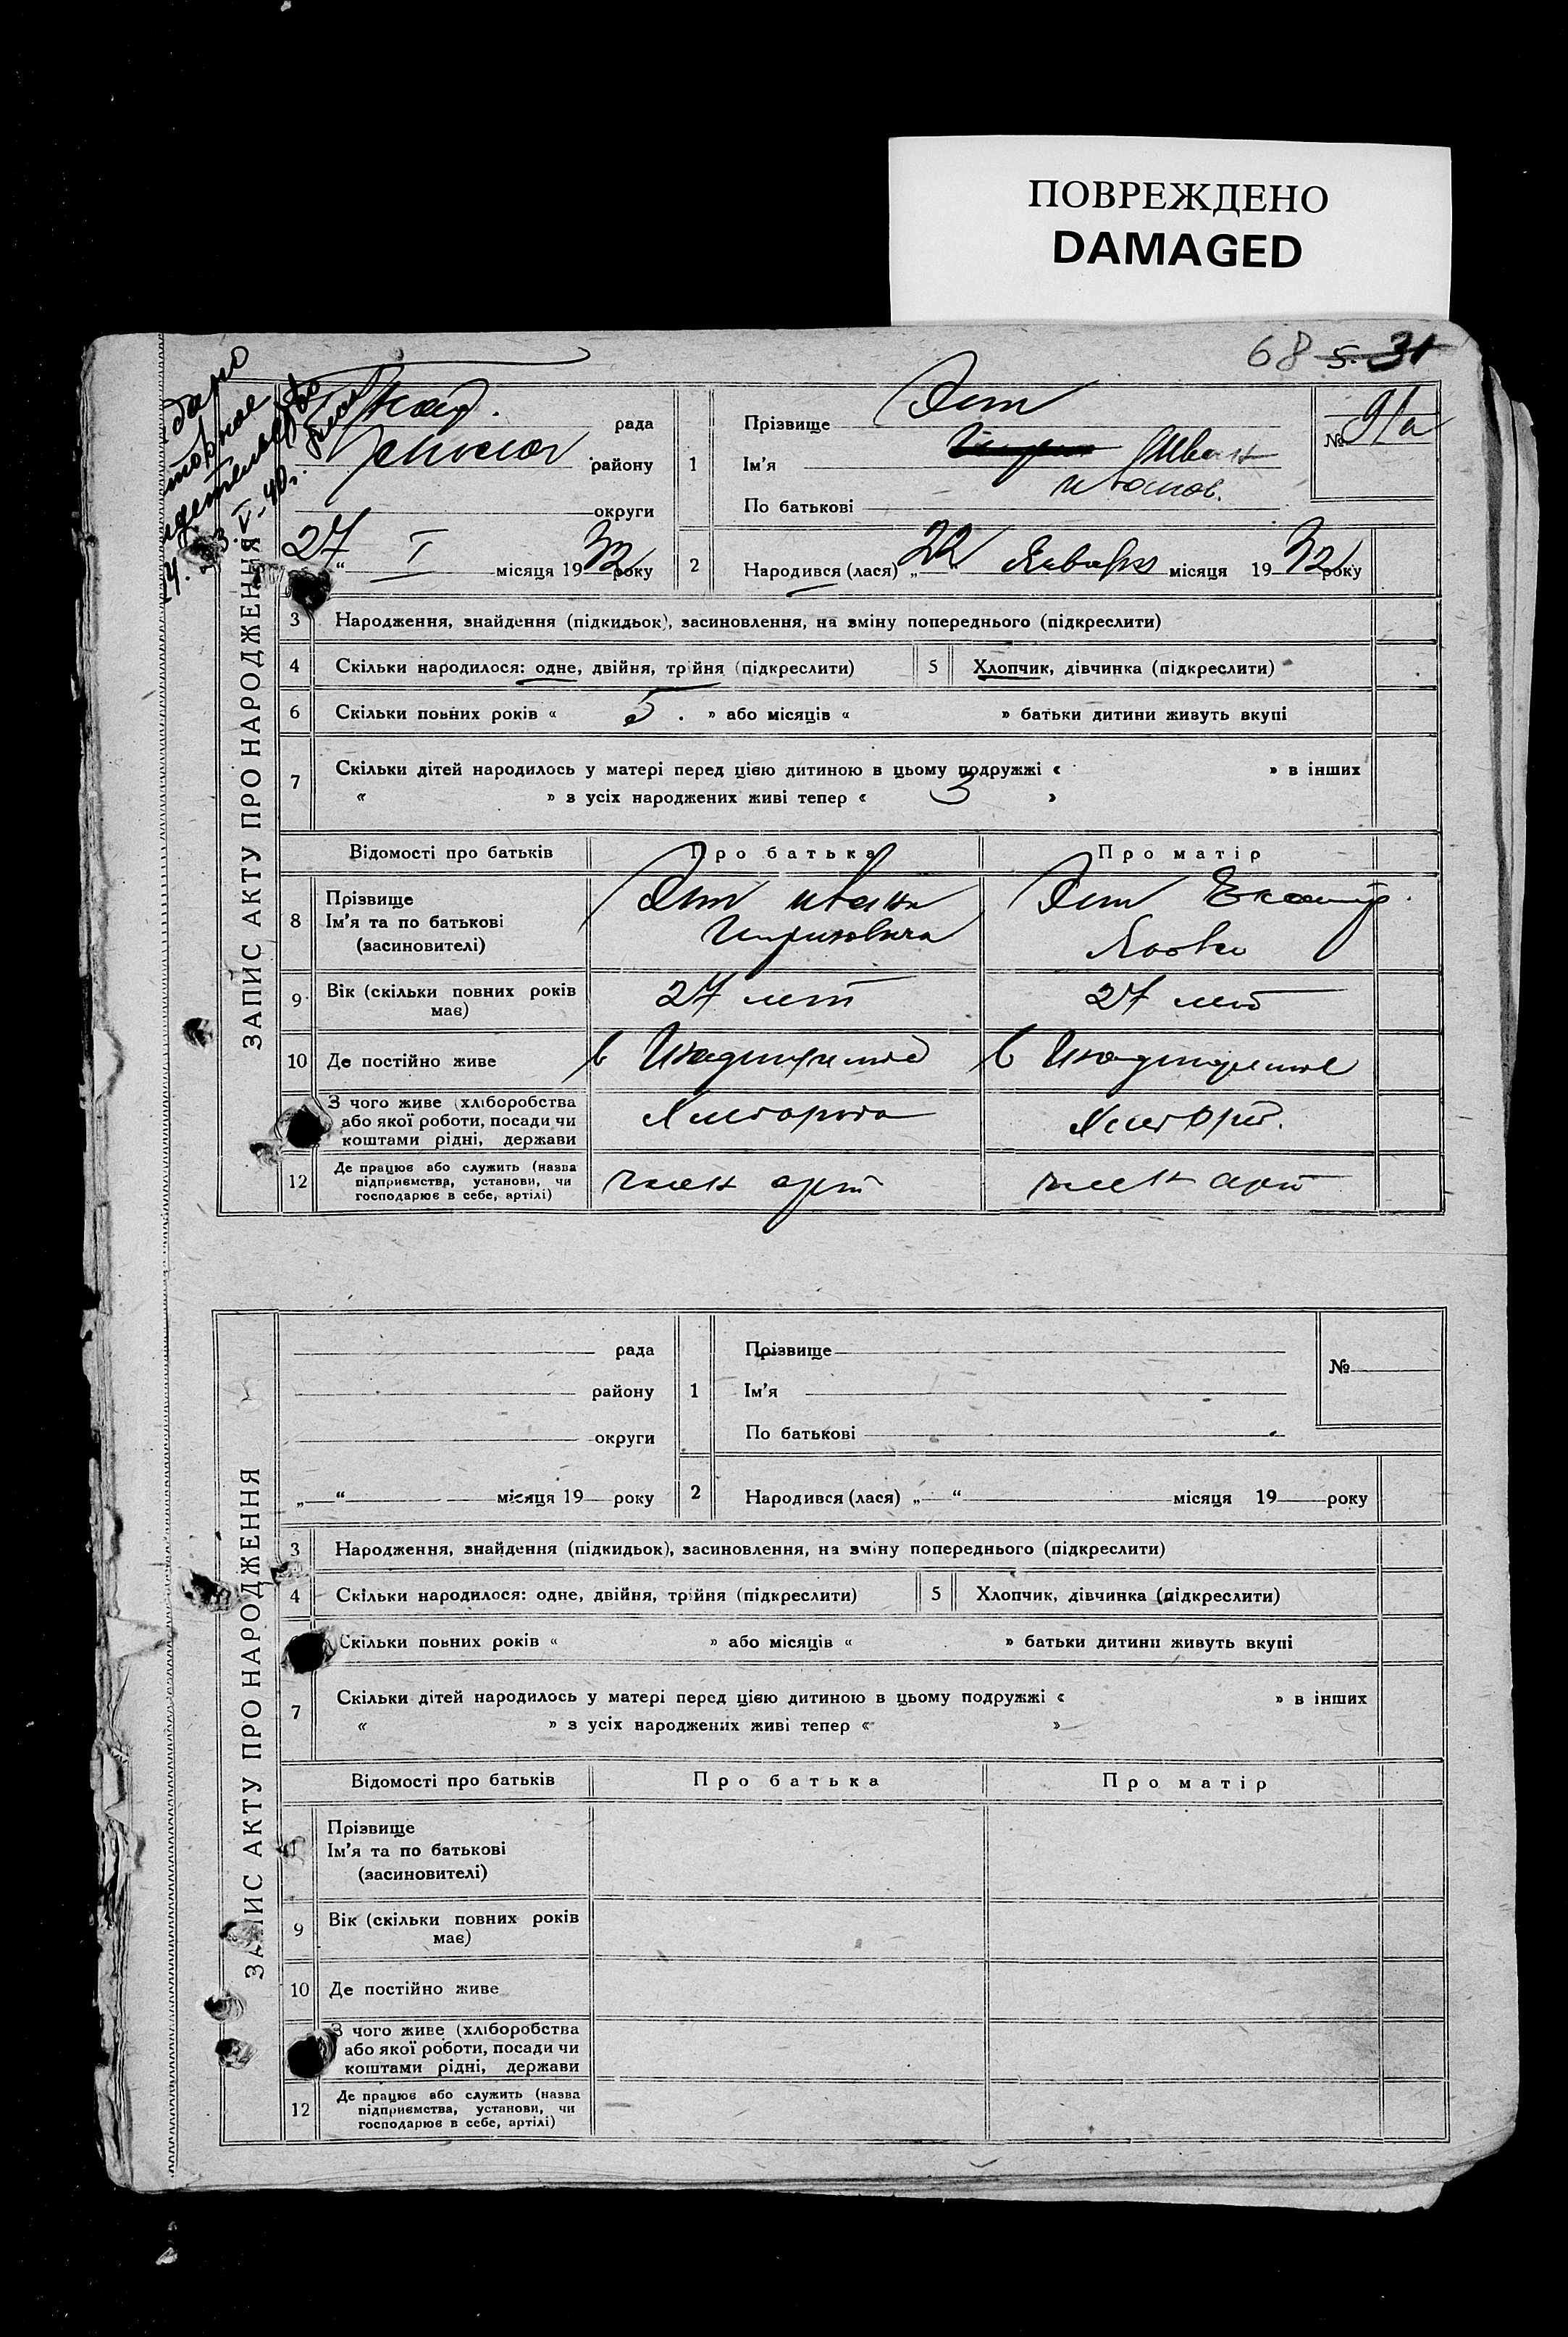 ПОВРЕЖДЕНО
DAMAGED
68 5. 31
ЗАПИС АКТУ ПРО НАРОДЖЕННЯ
рада
району
округи
27 " I місяця 1932 року
1
Прізвище
Ім'я Иван
По батькові Иванов.
№ 91а
2
Народився (лася) „22" Января місяця 1932 року
3 Народження, знайдення (підкидьок), засиновлення, на зміну попереднього (підкреслити)
4 Скільки народилося: одне, двійня, трійня (підкреслити) 5 Хлопчик, дівчинка (підкреслити)
6 Скільки повних років « 5. » або місяців « » батьки дитини живуть вкупі
7 Скільки дітей народилось у матері перед цією дитиною в цьому подружжі « » в інших
« » з усіх народжених живі тепер « 3 »
Відомості про батьків Про батька Про матір
8 Прізвище
Ім'я та по батькові
(засновителі)
Иван
Екатер.
9 Вік (скільки повних років має) 27 лет 27 лет
10 Де постійно живе в в
З чого живе (хліборобства
або якої роботи, посади чи
коштами рідні, держави
12 Де працює або служить (назва
підприємства, установи, чи
господарює в себе, артілі)
член арт член арт
ЗАПИС АКТУ ПРО НАРОДЖЕННЯ
рада
району
округи
„ “ місяця 19 року
1
Прізвище
Ім'я
По батькові
№
2
Народився (лася) „ “ місяця 19 року
3 Народження, знайдення (підкидьок), засиновлення, на зміну попереднього (підкреслити)
4 Скільки народилося: одне, двійня, трійня (підкреслити) 5 Хлопчик, дівчинка (підкреслити)
Скільки повних років « » або місяців « » батьки дитини живуть вкупі
7 Скільки дітей народилось у матері перед цією дитиною в цьому подружжі « » в інших
« » з усіх народжених живі тепер « »
Відомості про батьків Про батька Про матір
Прізвище
Ім'я та по батькові
(засиновителі)
9 Вік (скільки повних років
має)
10 Де постійно живе
З чого живе (хліборобства
або якої роботи, посади чи
коштами рідні, держави
12 Де працює або служить (назва
підприємства, установи, чи
господарює в себе, артілі)